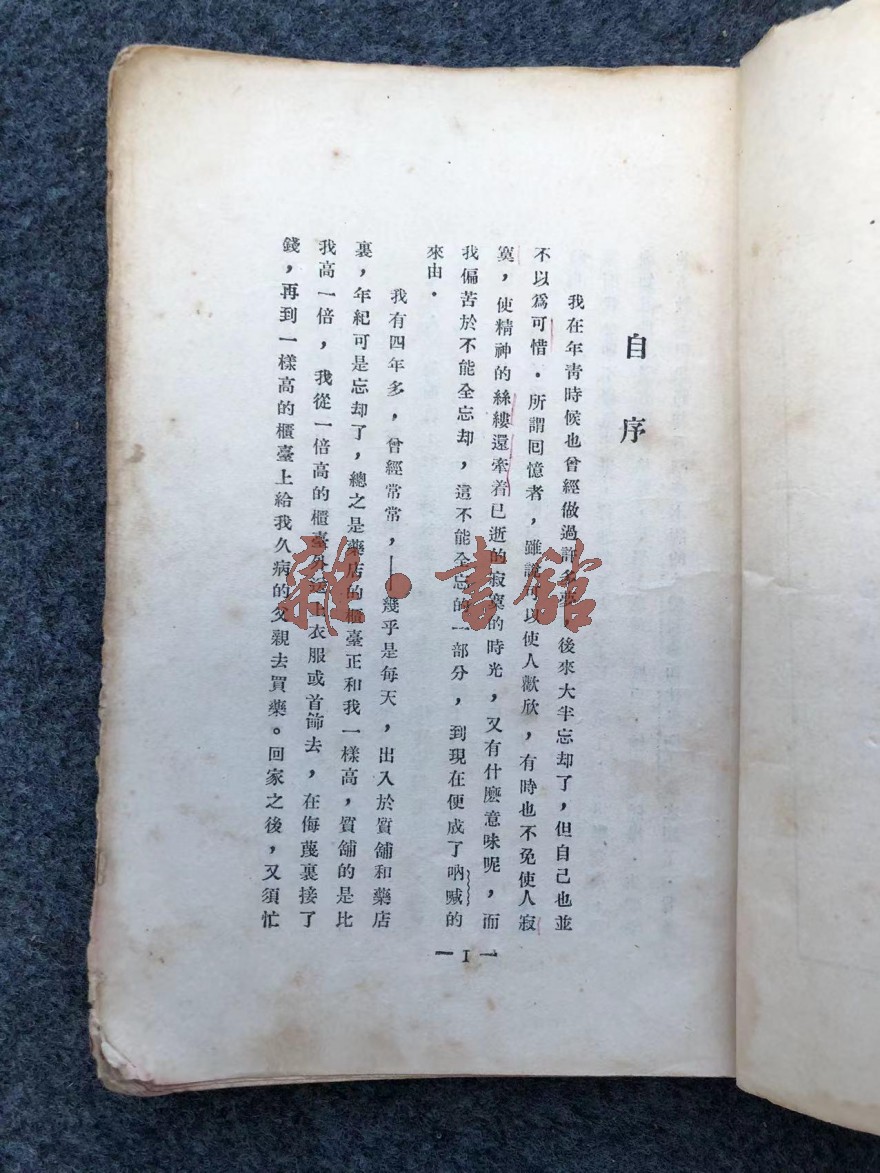 自序
我在年靑時候也曾經做過許多夢，後來大半忘却了，但自己也並
不以爲可惜．所謂囘憶者，雖說可以使人歡欣，有時也不免使人寂
寞，使精神的絲縷還牽着已逝的寂寞的時光，又有什麽意味呢，而
我偏苦於不能全忘却，這不能全忘的一部分，到現在便成了吶喊的
來由．
我有四年多，曾經常常，——幾乎是每天，出入於質舖和藥店
裏，年紀可是忘却了，總之是藥店的櫃臺正和我一樣高，質舖的是比
我高一倍，我從一倍高的櫃臺外送上衣服或首飾去，在侮蔑裏接了
錢，再到一樣高的櫃臺上給我久病的父親去買藥。回家之後，又須忙
— 1 —
雜·書館